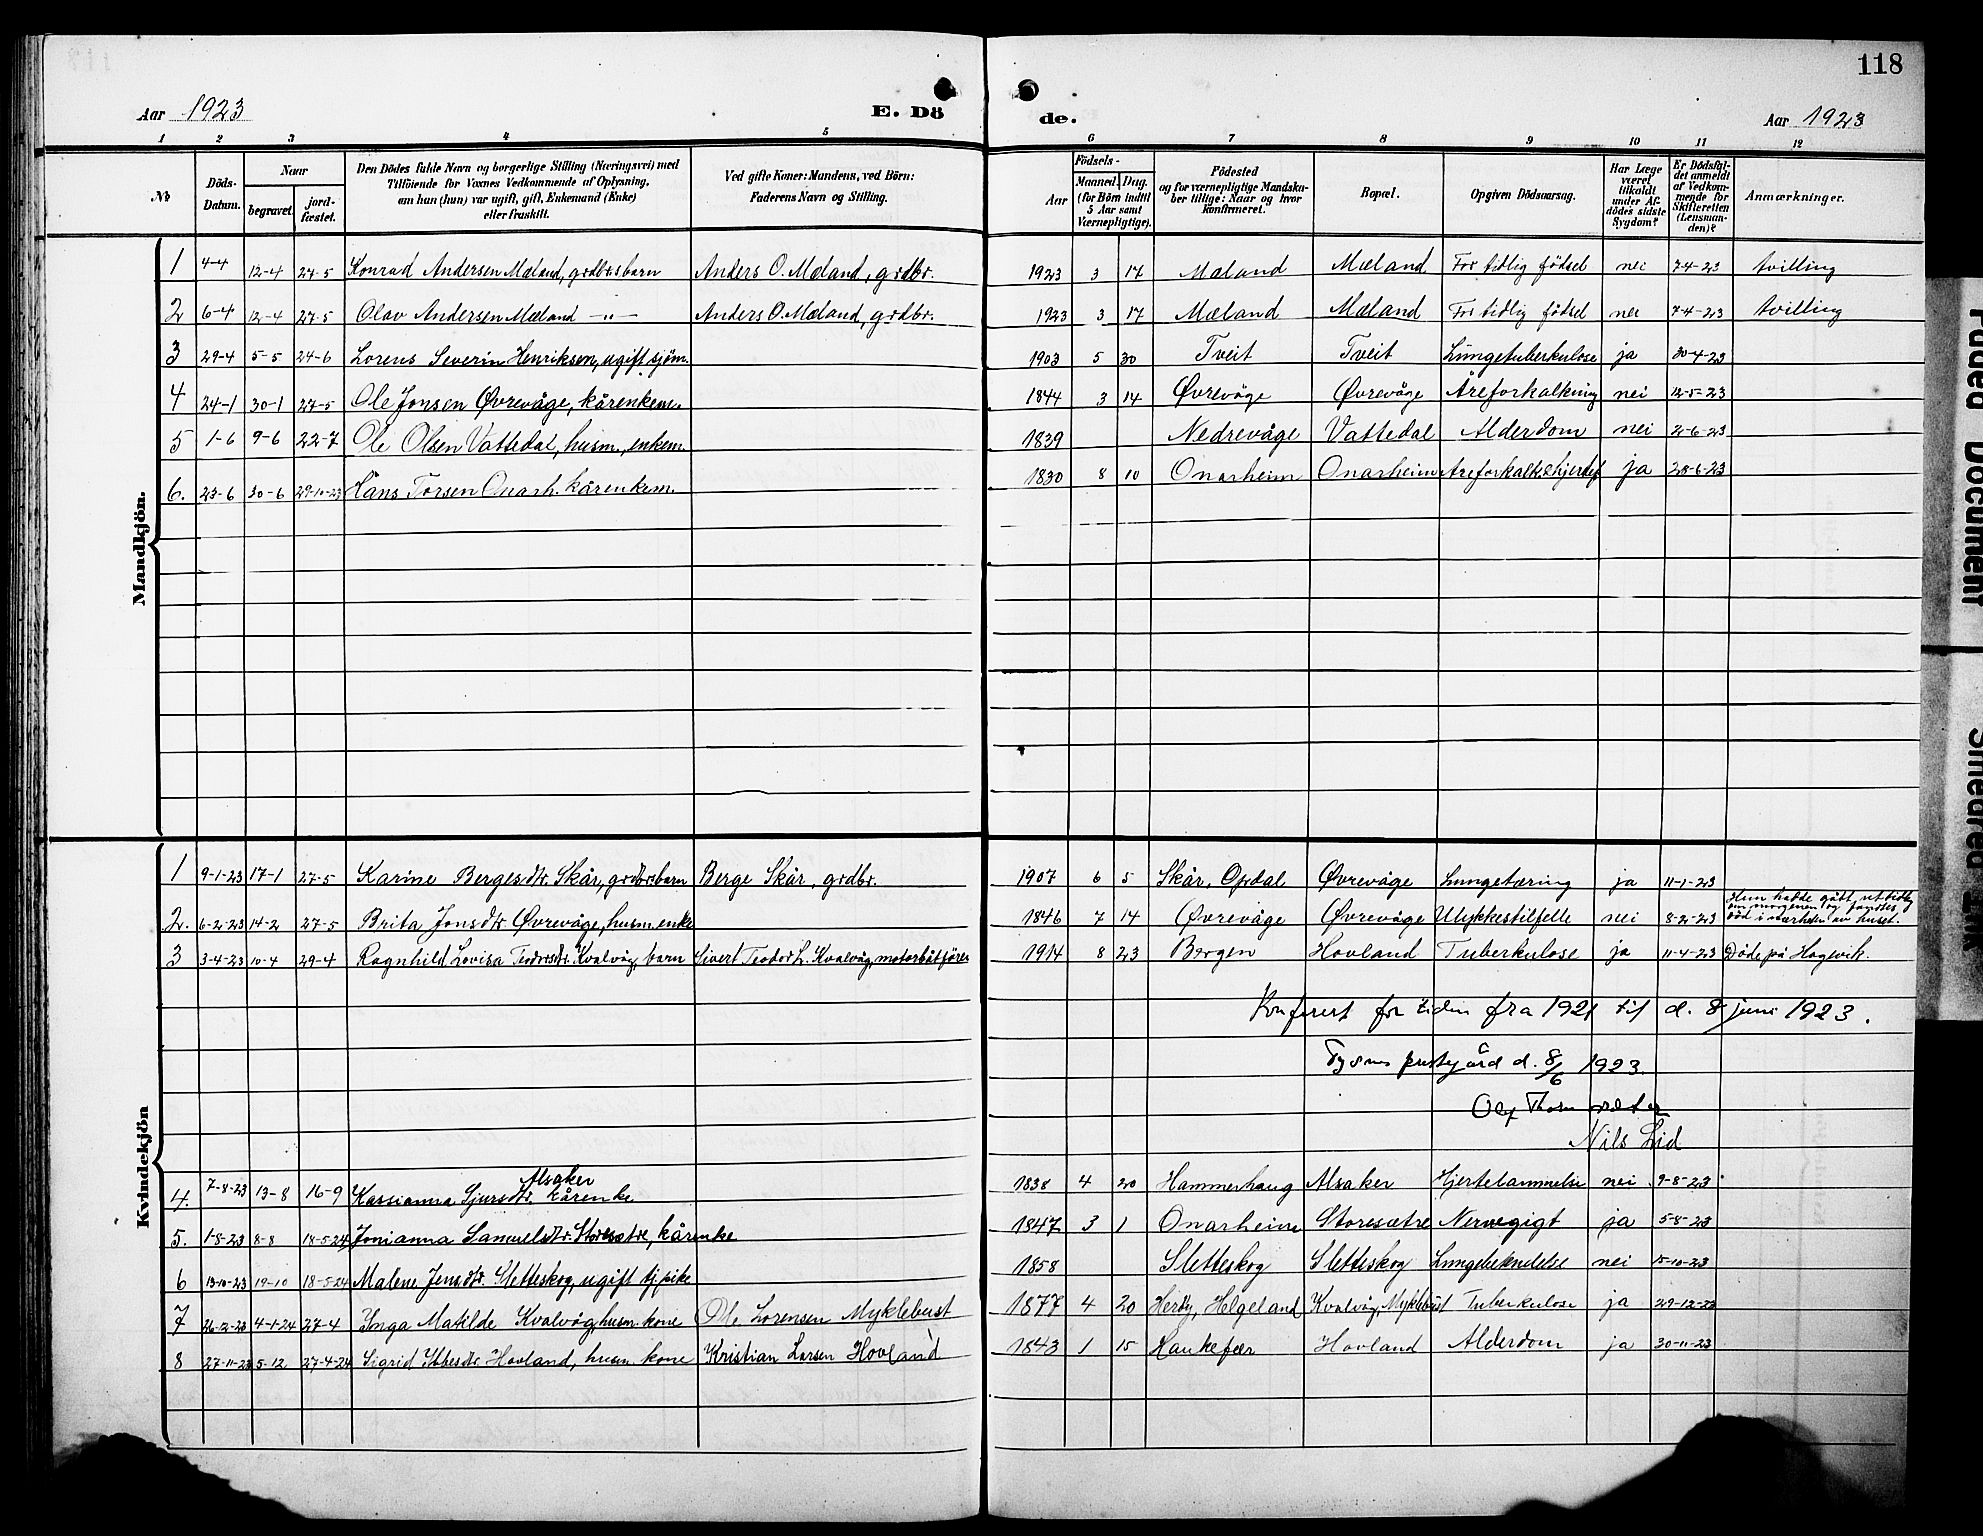 118
Aar 1923 E. Döde. Aar 1923
1 2 3 4 5 6 7 8 9 10 11 12
No
Döds-Datum.
Naar
begravet.
jordfæstet.
Den Dödes fulde Navn og borgerlige Stilling (Næringsvei) med
Tilföiende for Voxnes Vedkommende af Oplysning,
om hun (hun) var ugift, gift, Enkemand (Enke)
eller fraskilt.
Ved gifte Koner: Mandens, ved Börn:
Faderens Navn og Stilling.
Födsels-
Aar
Maaned. Dag.
(for Börn indtil
5 Aar samt
Værnepligtige).
Födested
og for værnepligtige Mandskaber tillige: Naar og hvor
konfirmeret.
Bopæl.
Opgiven Dödsaarsag.
Har Læge
været
tilkaldt
under Afdödes sidste
Sygdom?
Er Dödsfaldet anmeldt
af Vedkommende for
Skifteretten
(Lensmanden)?
Anmærkninger.
Mandkjön.
1 4-4 12-4 27-5 Konrad Andersen Mæland, grdbrsbarn Anders O. Mæland, grdbr. 1923 3 17 Mæland Mæland For tidlig födsel nei 7-4-23 tvilling
2 6-4 12-4 27-5 Olav Andersen Mæland -"- Anders O. Mæland, grdbr. 1923 3 17 Mæland Mæland For tidlig födsel nei 7-4-23 tvilling
3 29-4 5-5 24-6 Lorens Severin Henriksen, ugift sjöm. 1903 5 30 Tveit Tveit Lungetuberkulose ja 30-4-23
4 24-1 30-1 27-5 Ole Jonsen Øvrevåge, kårenkem. 1844 3 14 Øvrevåge Øvrevåge Åreforkalkning nei 12-5-23
5 1-6 9-6 22-7 Ole Olsen Vattedal, husm., enkem. 1839 Nedrevåge Vattedal Alderdom nei 2-6-23
6. 23-6 30-6 29-10-23 Hans Torsen Onarh. kårenkem. 1830 8 10 Onarheim Onarheim Åreforkalk. hjertef ja 28-6-23
Kvindekjön
1 9-1-23 17-1 27-5 Karine Bergesdtr. Skår, grdbrsbarn Berge Skår, grdbr. 1907 6 5 Skår, Opdal Øvrevåge Lungetæring ja 11-1-23
2. 6-2-23 14-2 27-5 Brita Jonsdtr. Øvrevåge, husm.enke 1846 7 14 Øvrevåge Øvrevåge Ulykkestilfelle nei 8-2-23 Hun hadde gått ut tidlig
om morgenen og fandtes
död i nærheten av huset.
3 3-4-23 10-4 29-4 Ragnhild Lovisa Teodorsdtr. Kvalvåg, barn Sivert Teodor L. Kvalvåg, motorbåtförer 1914 8 23 Bergen Hovland Tuberkulose ja 11-4-23 Döde på Hagevik.
Konferert for tiden fra 1921 til d. 8 juni 1923.
Tysnes prestegård d. 8/6 1923.
Olaf
Nils Lid
4. 7-8-23 13-8 16-9 Kassianna Sjursdtr. Alsaker kårenke 1838 4 20 Hammerhaug Alsaker Hjertelammelse nei 9-8-23
5. 1-8-23 8-8 18-5-24 Jonianna Samuelsdtr. Storesætre, kårenke 1847 3 1 Onarheim Storesætre Nervegigt ja 5-8-23
6 13-10-23 19-10 18-5-24 Malene Jensdtr. Sletteskog, ugift tj.pike 1858 Sletteskog Sletteskog Lungebetændelse nei 15-10-23
7 26-12-23 4-1-24 27-4 Inga Matilde Kvalvåg, husm. kone Ole Lorensen Myklebust 1877 4 20 Heröy, Helgeland Kvalvåg, Myklebust Tuberkulose ja 29-12-23
8 27-11-23 5-12 27-4-24 Sigrid Ibbesdtr. Hovland, husm. kone Kristian Larsen Hovland 1843 1 15 Haukefær Hovland Alderdom ja 30-11-23
Faded Document
Smeared Ink